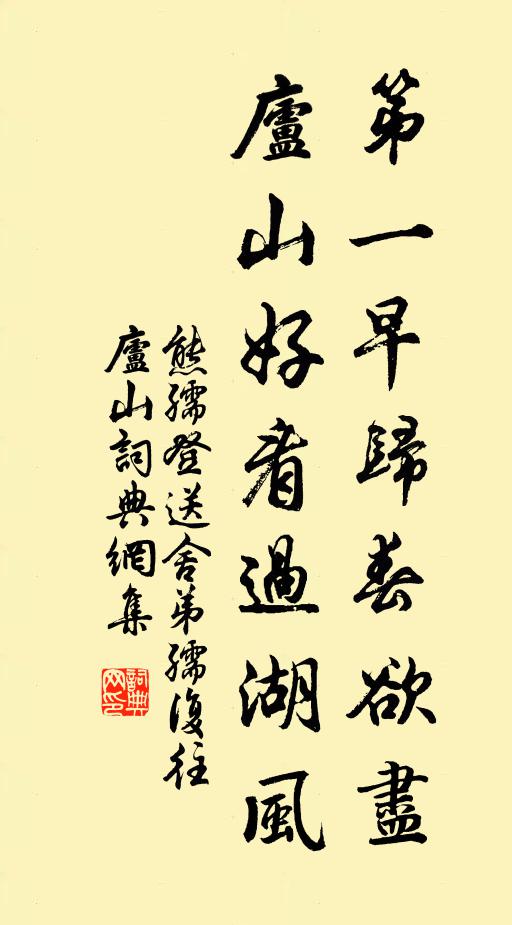 第一早歸春欲盡
廬山好看過湖風
熊孺登送舍弟孺復往
廬山詞典網集
詞典
网印